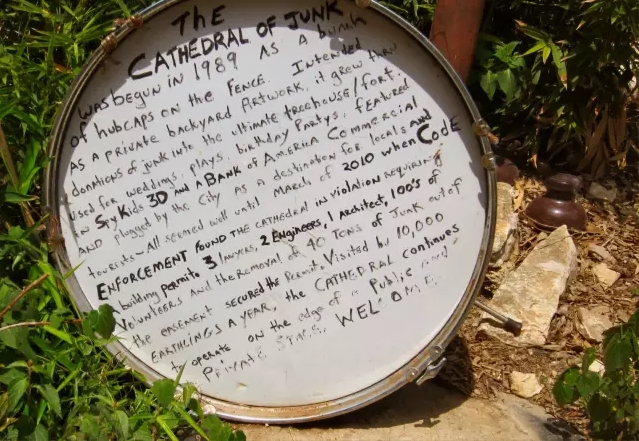 THE
CATHEDRAL OF JUNK
was begun in 1989 AS A bunch
of hubcaps on the FENCE. Intended
as a private backyard Artwork, it grew thru
donations of junk into the ultimate treehouse/fort.
Used for weddings, plays, birthday Partys, featured
in Spy Kids 3D and a BANK of AMERICA Commercial
AND plugged by the City as a destination for locals and
tourists - All seemed well until March of 2010 when CODE
ENFORCEMENT found the cathedral in violation requiring
building permits. 3 lawyers, 2 Engineers, 1 architect, 100's of
Volunteers and the removal of 40 TONS of Junk out of
the easement secured the Permit. Visited by 10,000
EARTHLINGS A YEAR, the CATHEDRAL continues
to operate on the edge of a Public and
Private SPACE. WELCOME.